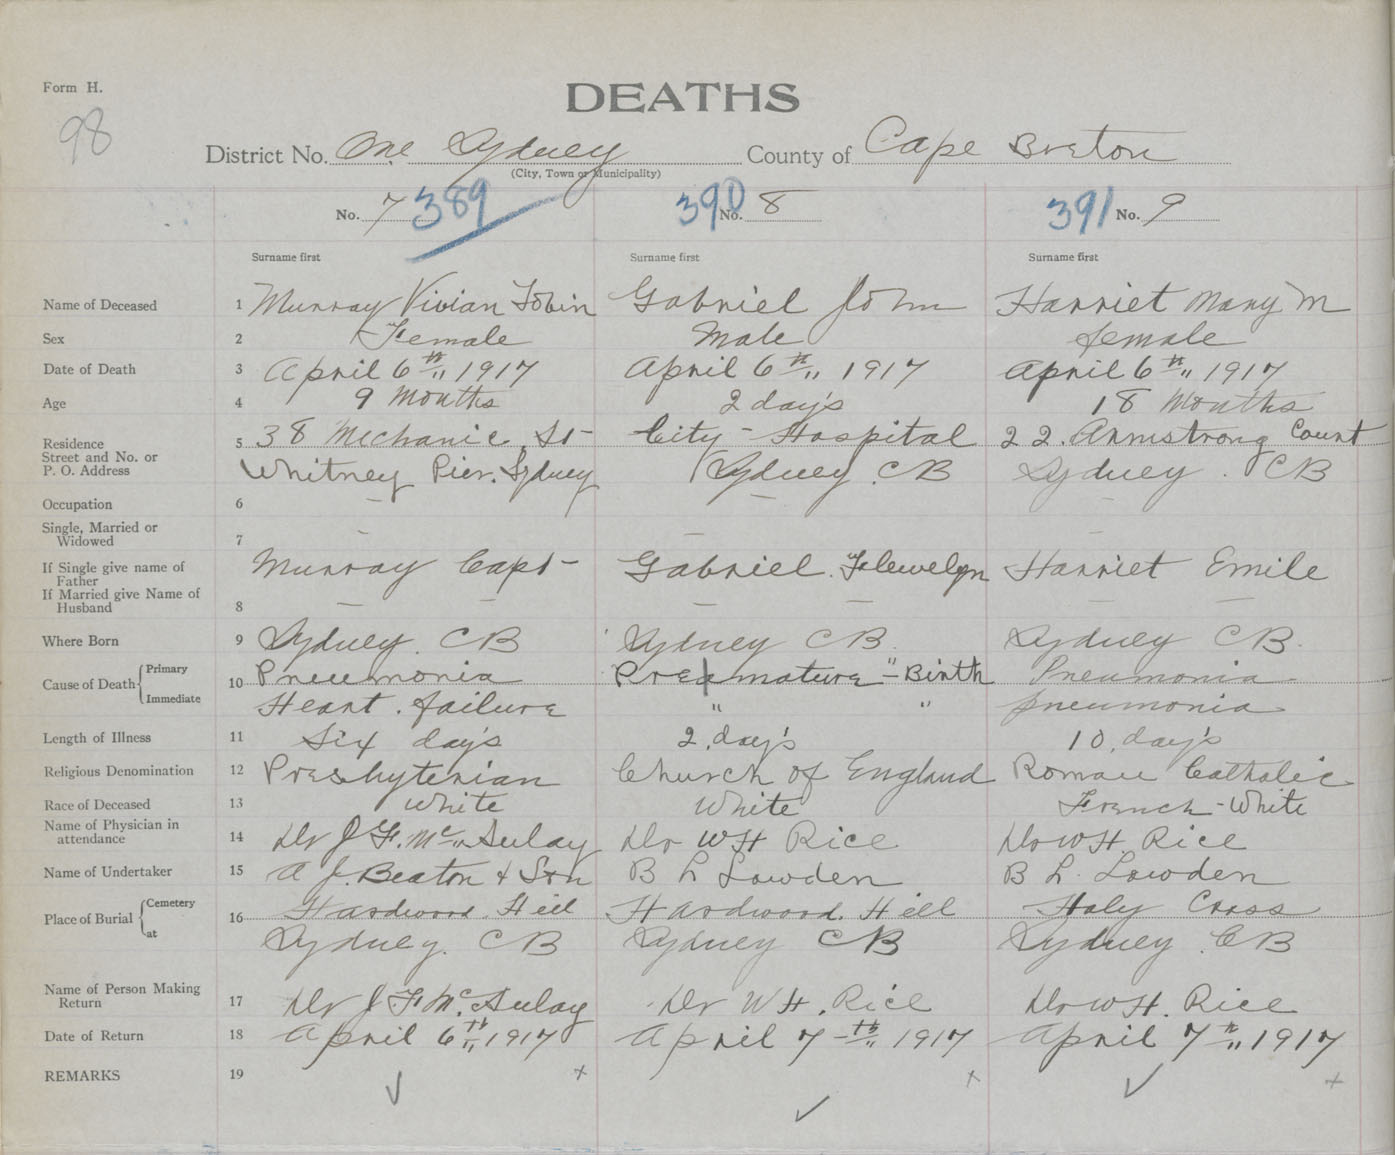 Form H.
98
DEATHS
District No. One Sydney County of Cape Breton
(City, Town or Municipality)
No. 7 389 390 No. 8 391 No. 9
Surname first Surname first Surname first
Name of Deceased 1 Murray Vivian Tobin Gabriel John Harriet Mary M
Sex 2 Female Male female
Date of Death 3 April 6th 1917 April 6th 1917 April 6th 1917
Age 4 9 Months 2 day's 18 Months
Residence 5 38 Mechanic St City Hospital 22. Armstrong Court
Street and No. or
P. O. Address Whitney Pier. Sydney Sydney. CB Sydney. CB
Occupation 6 – –
Single, Married or
Widowed 7 – – –
If Single give name of
Father Murray Capt Gabriel. Flewelyn Harriet Emile
If Married give Name of
Husband 8 – – – – – –
Where Born 9 Sydney. CB Sydney CB Sydney CB.
Cause of Death Primary 10 Pneumonia Premature - Birth Pneumonia
Immediate Heart. failure " " pneumonia
Length of Illness 11 Six day's 2, day's 10, day's
Religious Denomination 12 Presbyterian Church of England Roman Catholic
Race of Deceased 13 White White French-White
Name of Physician in
attendance 14 Dr J. F. Mc Aulay Dr WH Rice Dr WH. Rice
Name of Undertaker 15 A J. Beaton & Son B L Lowden B L. Lowden
Place of Burial Cemetery 16 Hardwood. Hill Hardwood. Hill Holy Cross
at Sydney. CB Sydney CB Sydney CB
Name of Person Making
Return 17 Dr J. F. Mc. Aulay Dr WH. Rice Dr WH. Rice
Date of Return 18 April 6th 1917 April 7th 1917 April 7th 1917
REMARKS 19 ✓ x ✓ x ✓ x